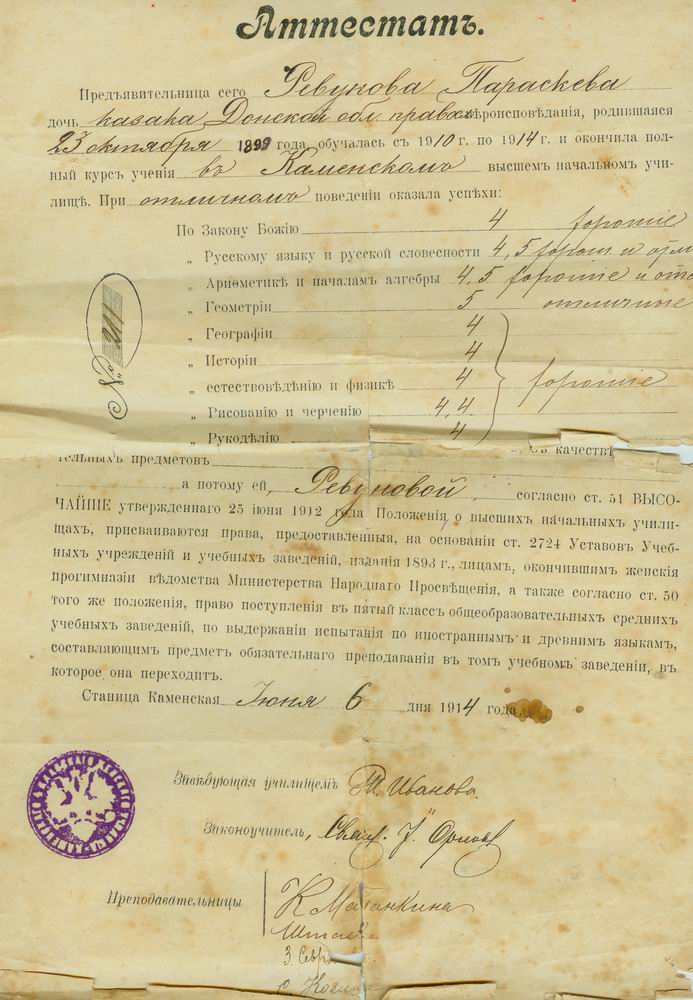 Аттестатъ.
Предъявительница сего Ревунова Параскева
дочь казака Донской обл. правосл. вѣроисповѣданія, родившаяся
23 октября 1899 года, обучалась съ 1910 г. по 1914 г. и окончила пол-
ный курсъ ученія въ Каменскомъ высшемъ начальномъ учи-
лищѣ. При отличномъ поведеніи оказала успѣхи:
По Закону Божію 4 хорошіе
„ Русскому языку и русской словесности 4, 5 хорош. и отл
„ Ариѳметикѣ и началамъ алгебры 4, 5 хорошіе и отл
„ Геометріи 5 отличные
„ Географіи 4
„ Исторіи 4
„ естествовѣдѣнію и физикѣ 4 хорошіе
„ Рисованію и черченію 4, 4
„ Рукодѣлію 4
№ 211
качествѣ
тельныхъ предметовъ
а потому ей, Ревуновой, согласно ст. 51 ВЫСО-
ЧАЙШЕ утвержденнаго 25 іюня 1912 года Положенія о высшихъ начальныхъ учили-
щахъ, присваиваются права, предоставленныя, на основаніи ст. 2724 Уставовъ Учеб-
ныхъ учрежденій и учебныхъ заведеній, изданія 1893 г., лицамъ, окончившимъ женскія
прогимназіи вѣдомства Министерства Народнаго Просвѣщенія, а также согласно ст. 50
того же положенія, право поступленія въ пятый классъ общеобразовательныхъ среднихъ
учебныхъ заведеній, по выдержаніи испытанія по иностраннымъ и древнимъ языкамъ,
составляющимъ предметъ обязательнаго преподаванія въ томъ учебномъ заведеніи, въ
которое она переходитъ.
Станица Каменская Іюня 6 дня 1914 года
Завѣдующая училищемъ Иванова
Законоучитель, Свящ. І. Орловъ
Преподавательницы К. Маланкина
З. Севр